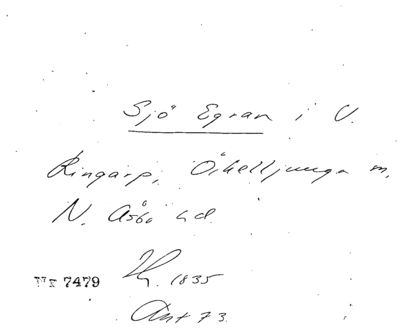 Sjö Egran i V.
Ringarp, Örkelljunga m.
N. Åsbo hd.
Nr 7479
1835
Ant 73.